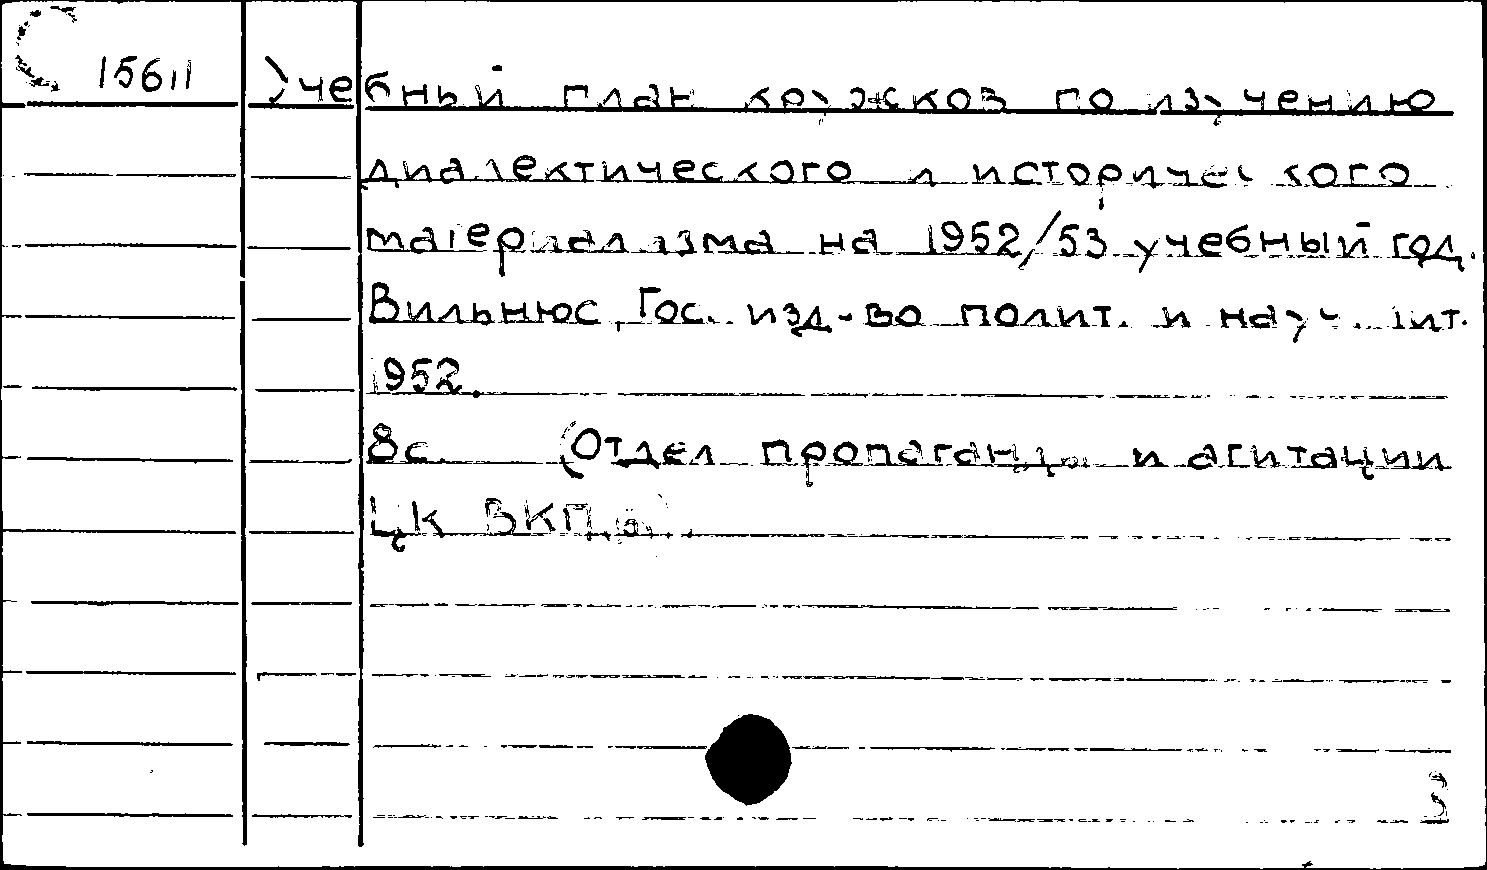 15611 Учебный план кружков по изучению
диалектического и исторического
материализма на 1952/53 учебный год.
Вильнюс, Гос. изд-во полит. и науч. лит.
1952.
8с. (Отдел пропаганды и агитации
ЦК ВКП(б).